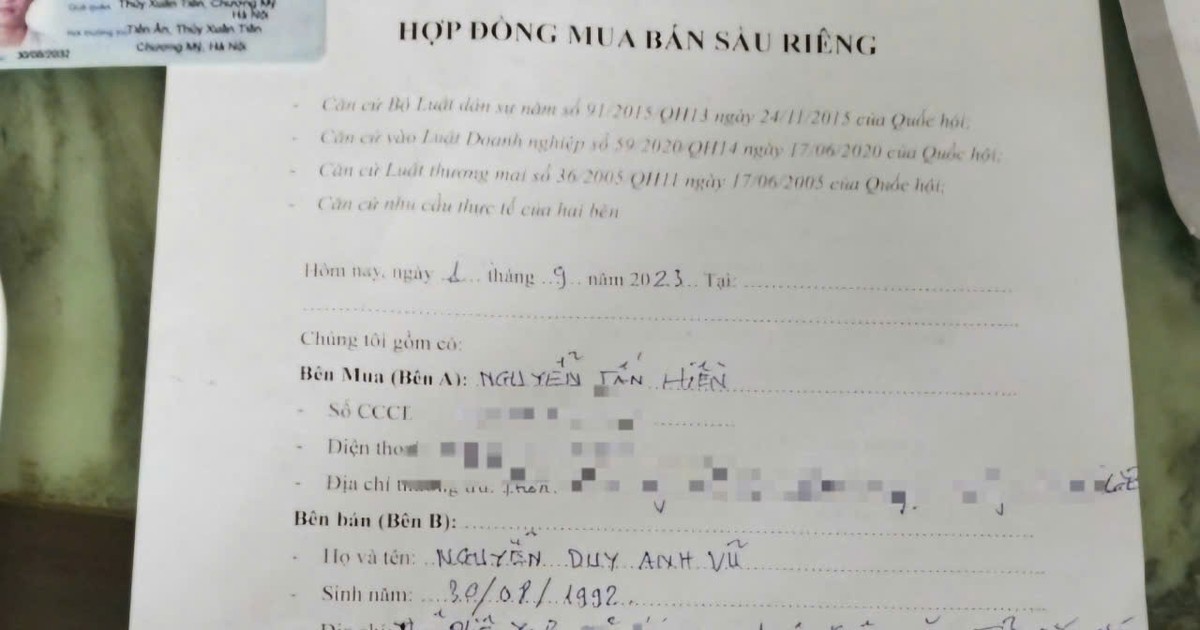 Quê quán: Thủy Xuân Tiên, Chương Mỹ
Hà Nội
Tiên Ân, Thủy Xuân Tiên
Chương Mỹ, Hà Nội
30/08/2032
HỢP ĐỒNG MUA BÁN SẦU RIÊNG
- Căn cứ Bộ Luật dân sự năm số 91/2015/QH13 ngày 24/11/2015 của Quốc hội;
- Căn cứ vào Luật Doanh nghiệp số 59/2020/QH14 ngày 17/06/2020 của Quốc hội;
- Căn cứ Luật thương mai số 36/2005/QH11 ngày 17/06/2005 của Quốc hội;
- Căn cứ nhu cầu thực tế của hai bên
Hôm nay, ngày 1 tháng 9 năm 2023 Tại:
Chúng tôi gồm có:
Bên Mua (Bên A): NGUYỄN TẤN HIỀN
- Số CCCD
- Điện tho
- Địa chỉ
Bên bán (Bên B):
- Họ và tên: NGUYỄN DUY ANH VŨ
- Sinh năm: 30/08/1992.